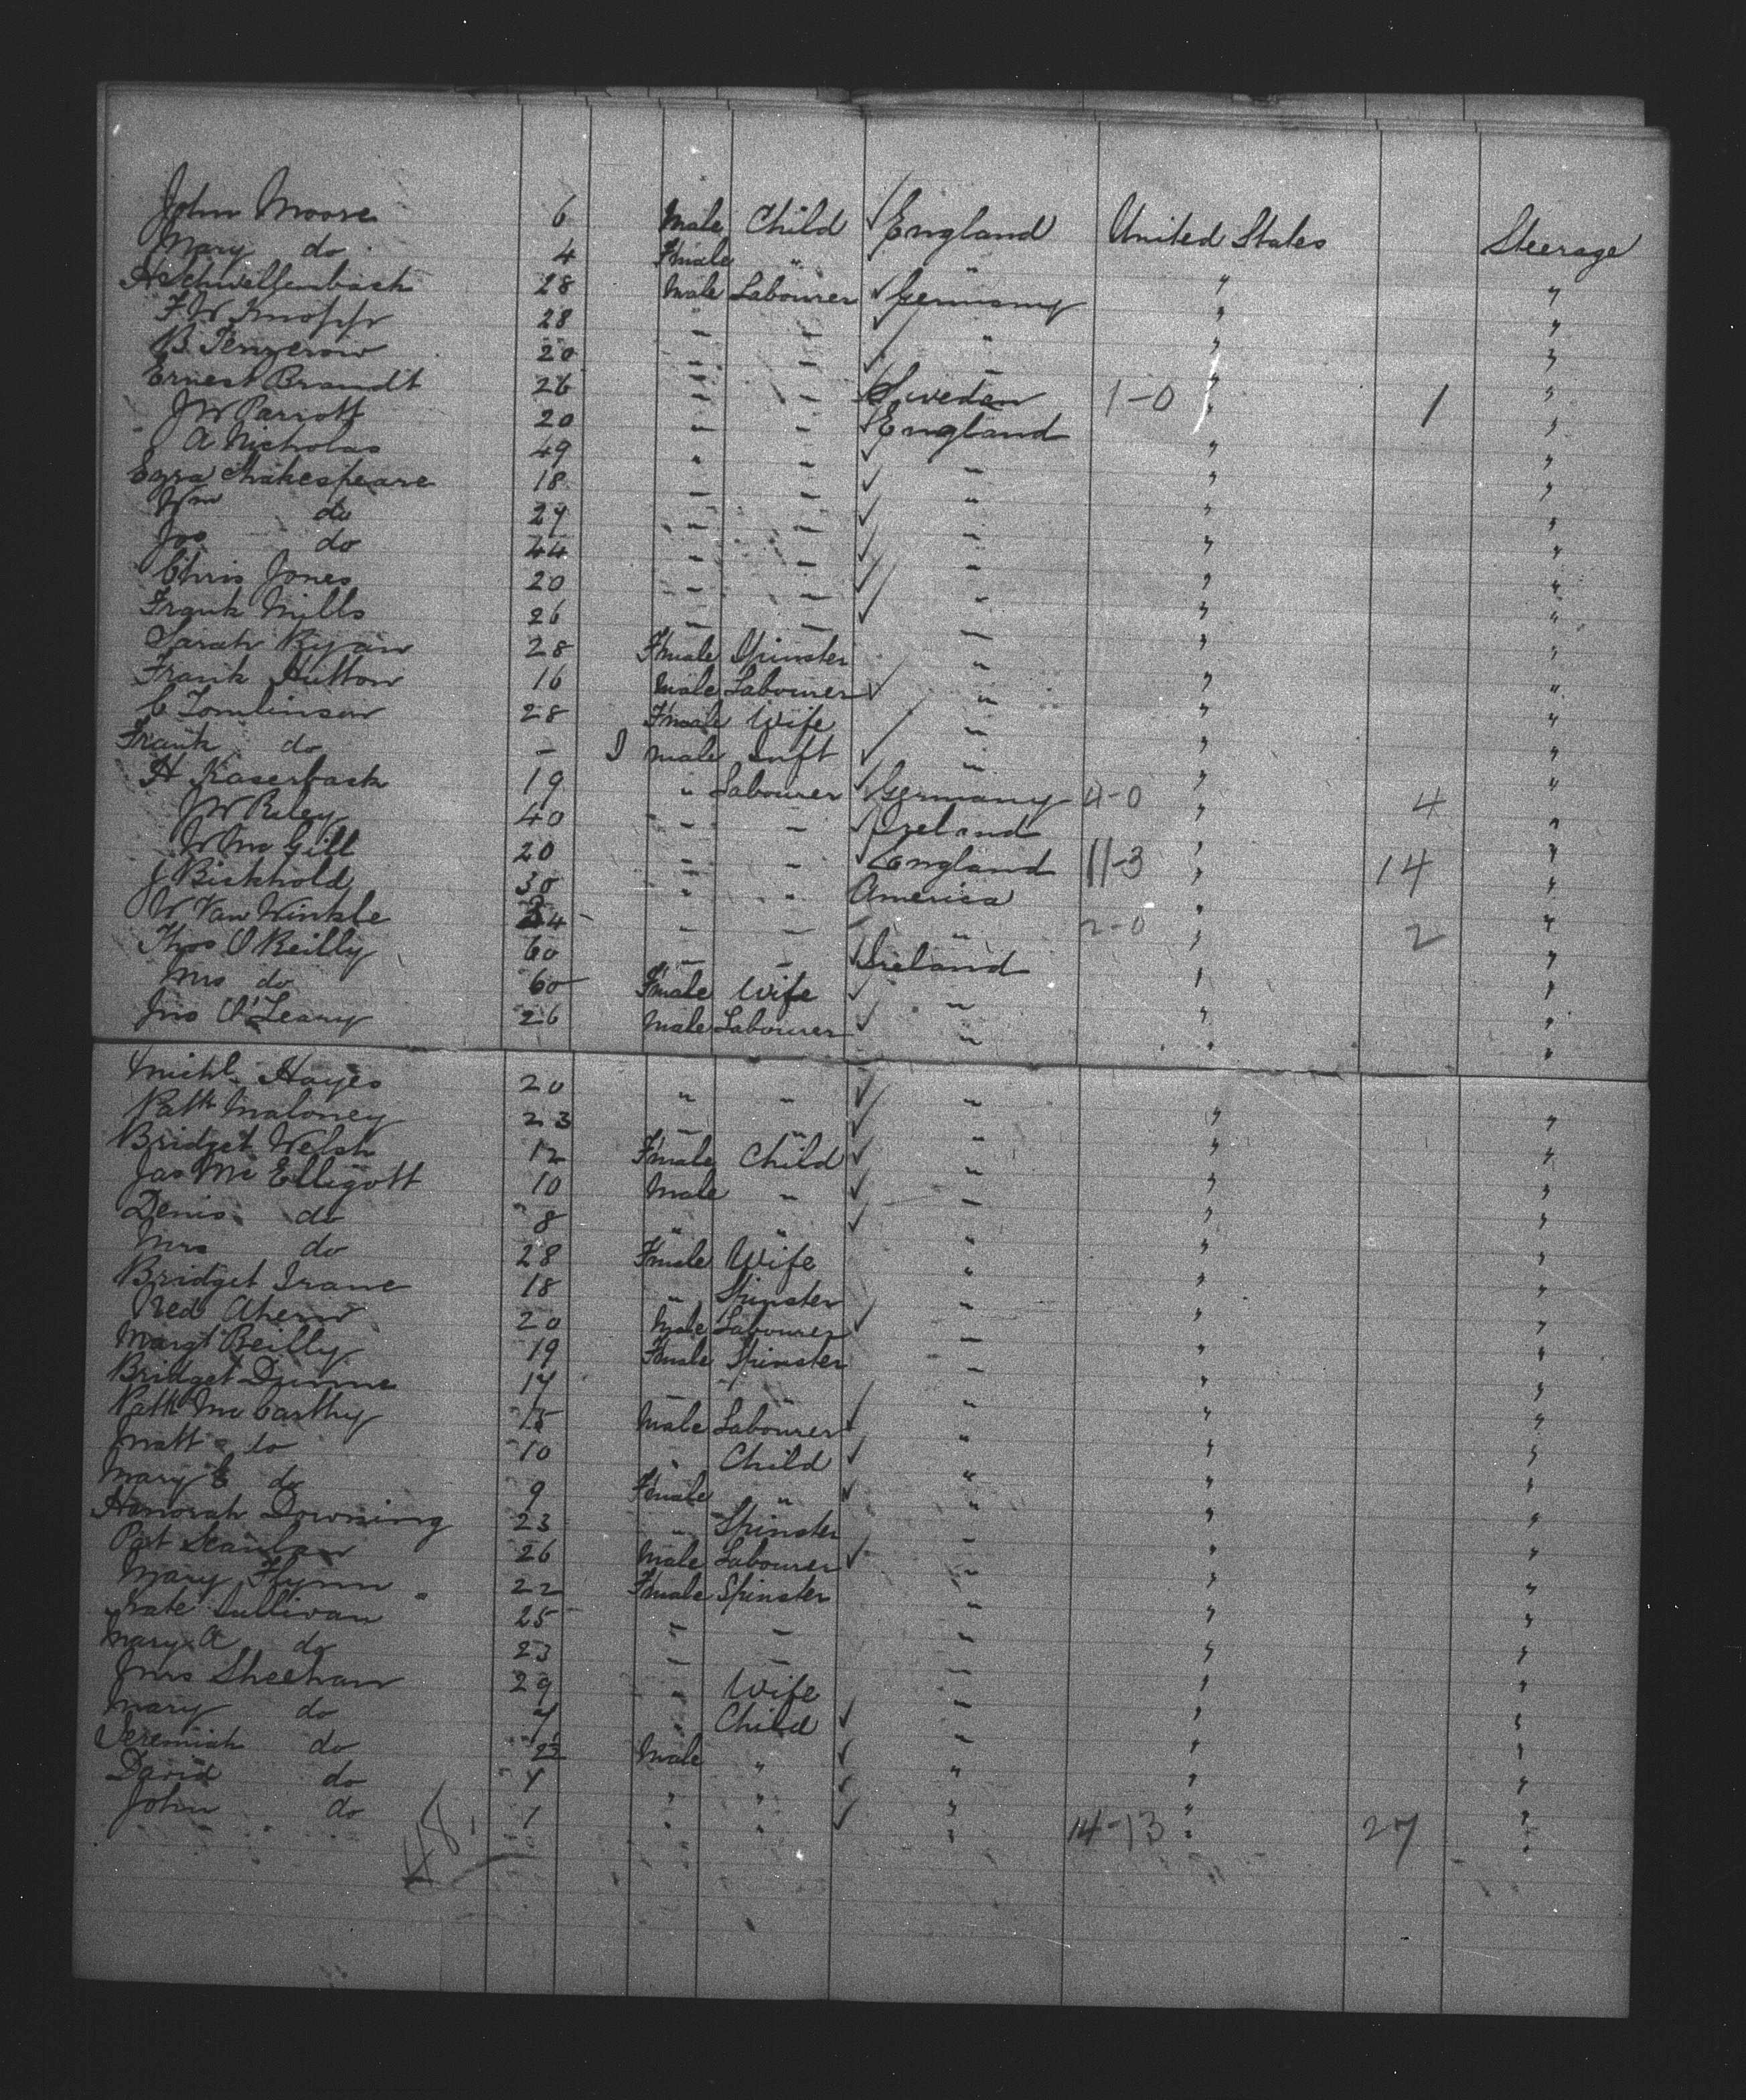 John Moore 6 Male Child ✓ England United States Steerage
Mary do 4 Female " ✓ " " "
H Schwellenbach 28 Male Labourer ✓ Germany " "
F W Knopf 28 " – – ✓ " " "
B 20 – – – ✓ – " "
Ernest Brandt 26 – – Sweden 1-0 " 1 "
J W Parrott 20 – – ✓ England " "
A Nicholas 49 " – ✓ – " "
Ezra Shakespeare 18 – – ✓ " " "
Wm do 29 – – ✓ – " "
Jos do 44 – – ✓ – " "
Chris Jones 20 – – ✓ – " "
Frank Mills 26 – – ✓ – " "
Sarah Ryan 28 Female Spinster " " "
Frank Hutton 16 Male Labourer ✓ " " "
C Tomlinson 28 Female Wife – " "
Frank do – I male Inft ✓ – " "
H Kaserback 19 " Labourer ✓ Germany 4-0 " 4 "
J W Riley 40 – – ✓ Ireland " "
Wm Gill 20 – – ✓ England 11-3 " 14 "
J Bickhold 30 " " America " "
W Van Winkle 34 – – – " 2-0 " 2 "
Thos O'Reilly 60 – – ✓ Ireland " "
Mrs do 60 Female Wife ✓ " " "
Jno O'Leary 26 Male Labourer ✓ " " "
Michl Hayes 20 " " ✓ " " "
Patk Maloney 23 – " ✓ – " "
Bridget Welsh 12 Female Child ✓ " " "
Jas Mc Elligott 10 Male " ✓ – " "
Denis do 8 " " ✓ " " "
Mrs do 28 Female Wife " " "
Bridget 18 " Spinster " " "
Ned Ahern 20 Male Labourer ✓ – " "
Margt Reilly 19 Female Spinster – " "
Bridget Dunne 17 – " " " "
Patk Mc Carthy 15 Male Labourer ✓ " " "
Matt do 10 " Child ✓ " " "
Mary do 9 Female " ✓ " " "
Honorah Downing 23 " Spinster – " "
Pat Scanlan 26 Male Labourer ✓ " " "
Mary Flynn 22 Female Spinster " " "
Kate Sullivan 25 – – – " "
Mary A do 23 – – – " "
Mrs Sheehan 29 " Wife – " "
Mary do 7 " Child ✓ – " "
Jeremiah do Male " ✓ " " "
David do 4 " " ✓ " " "
John do 1 " " ✓ " 14-13 " 27 "
48